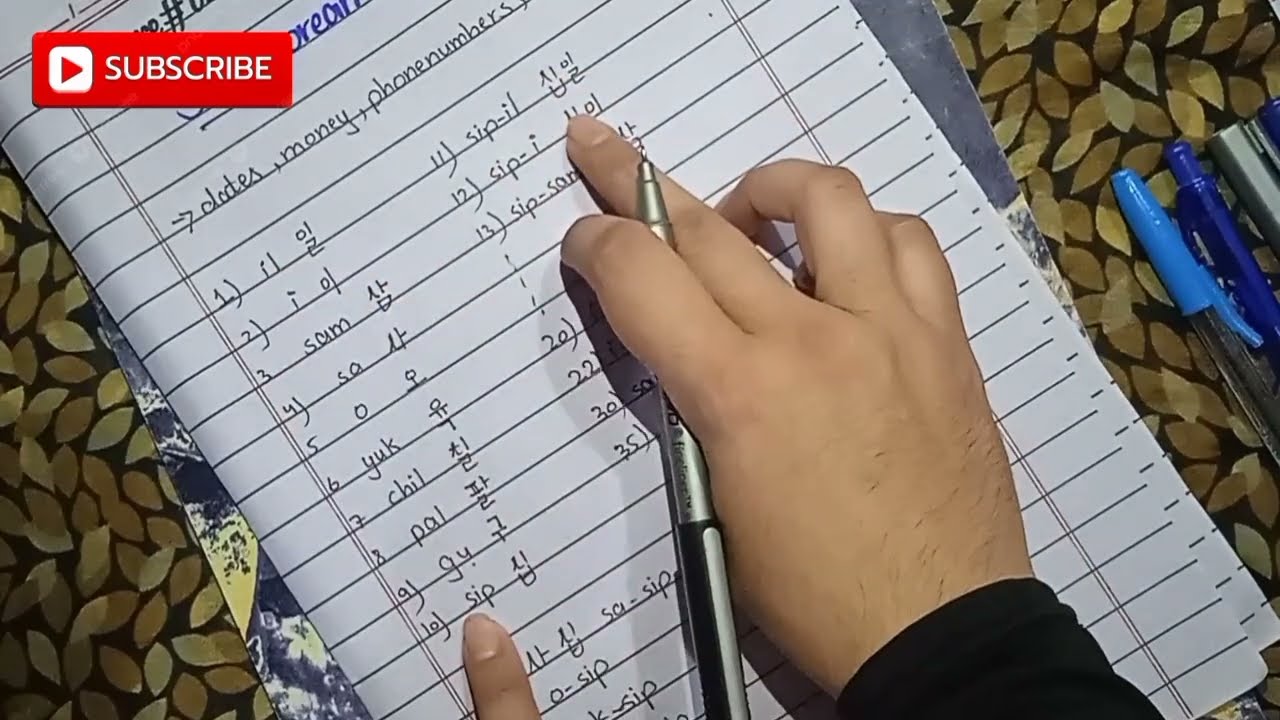 SUBSCRIBE
→ dates, money, phonenumbers,
1) il 일
2) i 이
3 sam 삼
4) sa 사
5 o 오
6 yuk 유
7 chil 칠
8 pal 팔
9) gu 구
10) sip 십
11) sip-il 십일
12) sip-i 십이
13) sip-sam
20)
22)
30) sa
35)
사십 sa-sip
o-sip
k-sip